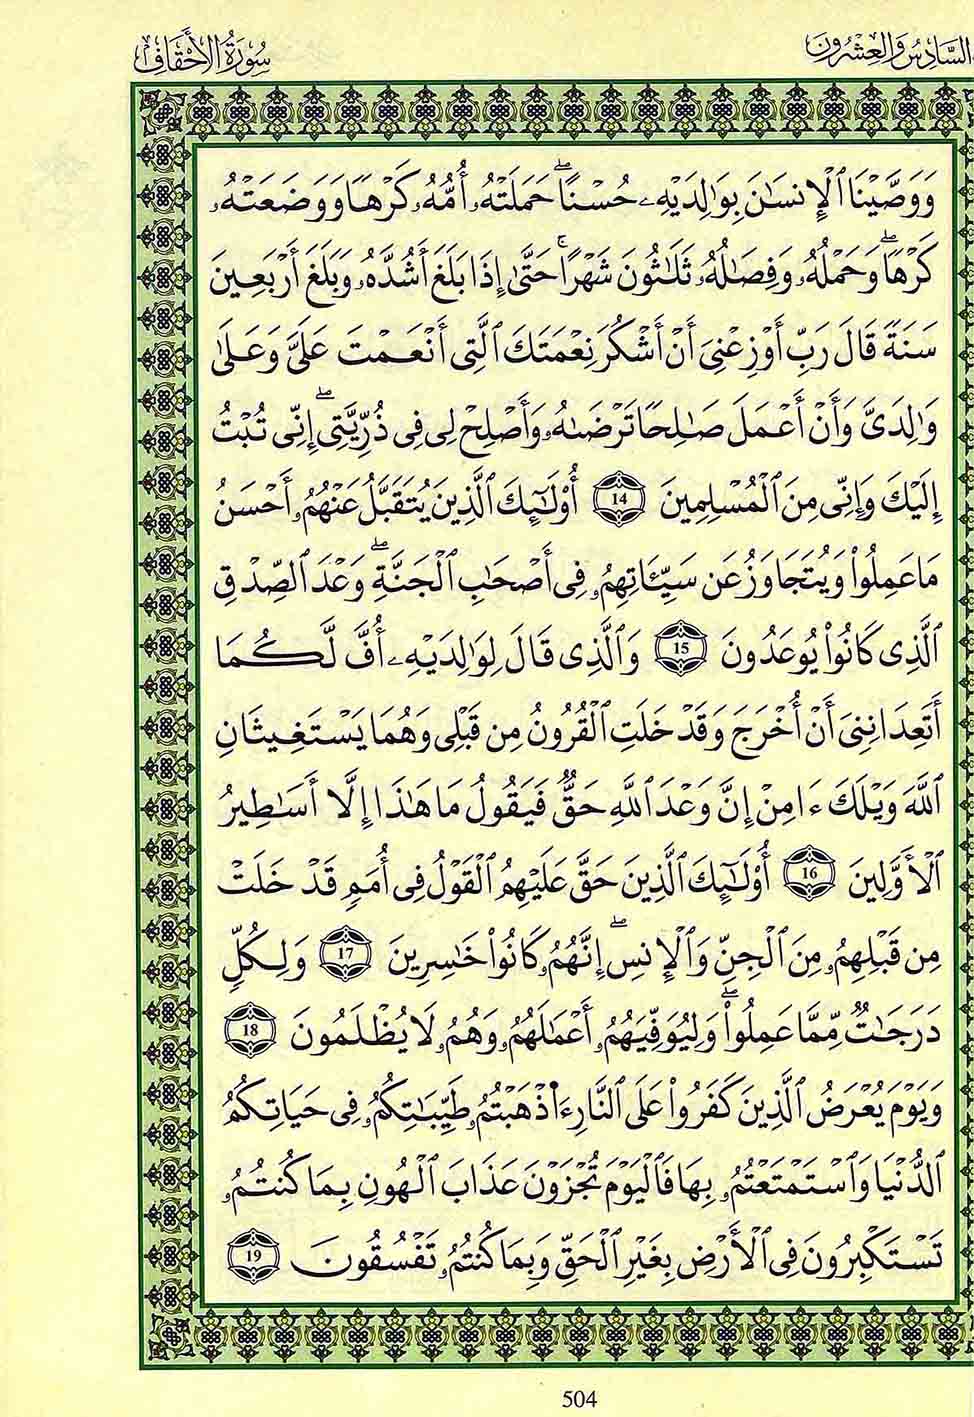 السَّادِسُ وَالْعِشْرُونَ
سُورَةُ الْأَحْقَافِ
وَوَصَّيْنَا اَ۬لْإِنسَٰنَ بِوَٰلِدَيْهِۦ حُسْناًۖ حَمَلَتْهُ أُمُّهُۥ كَرْهاً وَوَضَعَتْهُ
كَرْهاًۖ وَحَمْلُهُۥ وَفِصَٰلُهُۥ ثَلَٰثُونَ شَهْراًۚ حَتَّىٰ إِذَا بَلَغَ أَشُدَّهُۥ وَبَلَغَ أَرْبَعِينَ
سَنَةً قَالَ رَبِّ أَوْزِعْنِيَ أَنْ أَشْكُرَ نِعْمَتَكَ اَ۬لَّتِي أَنْعَمْتَ عَلَيَّ وَعَلَىٰ
وَٰلِدَيَّ وَأَنْ أَعْمَلَ صَٰلِحاً تَرْضَىٰهُ وَأَصْلِحْ لِي فِي ذُرِّيَّتِيۖ إِنِّي تُبْتُ
إِلَيْكَ وَإِنِّي مِنَ اَ۬لْمُسْلِمِينَ 14 أُوْلَٰٓئِكَ اَ۬لَّذِينَ يُتَقَبَّلُ عَنْهُمُۥ أَحْسَنُ
مَا عَمِلُواْ وَيُتَجَاوَزُ عَن سَيِّـَٔاتِهِمُۥ فِي أَصْحَٰبِ اِ۬لْجَنَّةِۖ وَعْدَ اَ۬لصِّدْقِ
اِ۬لَّذِي كَانُواْ يُوعَدُونَ 15 وَالَّذِي قَالَ لِوَٰلِدَيْهِۦ أُفَّ لَّكُمَا
أَتَعِدَانِنِيَ أَنْ أُخْرَجَ وَقَدْ خَلَتِ اِ۬لْقُرُونُ مِن قَبْلِي وَهُمَا يَسْتَغِيثَانِ
اِ۬للَّهَ وَيْلَكَ ءَامِنْ إِنَّ وَعْدَ اَ۬للَّهِ حَقٌّ فَيَقُولُ مَا هَٰذَا إِلَّا أَسَٰطِيرُ
اُ۬لْأَوَّلِينَ 16 أُوْلَٰٓئِكَ اَ۬لَّذِينَ حَقَّ عَلَيْهِمُ اُ۬لْقَوْلُ فِي أُمَمٍ قَدْ خَلَتْ
مِن قَبْلِهِمُۥ مِنَ اَ۬لْجِنِّ وَالْإِنسِۖ إِنَّهُمُۥ كَانُواْ خَٰسِرِينَ 17 وَلِكُلٍّ
دَرَجَٰتٌ مِّمَّا عَمِلُواْۖ وَلِيُوَفِّيَهُمُۥ أَعْمَٰلَهُمُۥ وَهُمُۥ لَا يُظْلَمُونَ 18
وَيَوْمَ يُعْرَضُ اُ۬لَّذِينَ كَفَرُواْ عَلَى اَ۬لنَّارِ ءَا۬ذْهَبْتُمُۥ طَيِّبَٰتِكُمُۥ فِي حَيَاتِكُمُ
اُ۬لدُّنْيَا وَاسْتَمْتَعْتُمُۥ بِهَا فَالْيَوْمَ تُجْزَوْنَ عَذَابَ اَ۬لْهُونِ بِمَا كُنتُمُۥ
تَسْتَكْبِرُونَ فِي اِ۬لْأَرْضِ بِغَيْرِ اِ۬لْحَقِّ وَبِمَا كُنتُمُۥ تَفْسُقُونَ 19
504